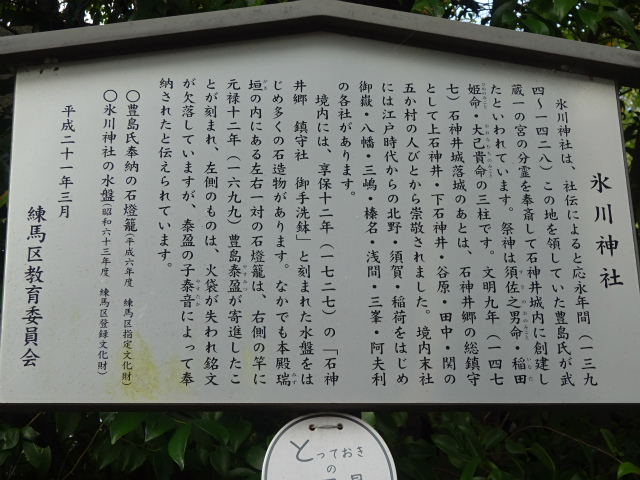 氷川神社
氷川神社は、社伝によると応永年間（一三九
四～一四二八）この地を領していた豊島氏が武
蔵一の宮の分霊を奉斎して石神井城内に創建し
たといわれています。祭神は須佐之男命・稲田
姫命・大己貴命の三柱です。文明九年（一四七
七）石神井城落城のあとは、石神井郷の総鎮守
として上石神井・下石神井・谷原・田中・関の
五か村の人びとから崇敬されました。境内末社
には江戸時代からの北野・須賀・稲荷をはじめ
御嶽・八幡・三嶋・榛名・浅間・三峯・阿夫利
の各社があります。
境内には、享保十二年（一七二七）の「石神
井郷　鎮守社　御手洗鉢」と刻まれた水盤をは
じめ多くの石造物があります。なかでも本殿瑞
垣の内にある左右一対の石燈籠は、右側の竿に
元禄十二年（一六九九）豊島泰盈が寄進したこ
とが刻まれ、左側のものは、火袋が失われ銘文
が欠落していますが、泰盈の子泰音によって奉
納されたと伝えられています。
〇豊島氏奉納の石燈籠（平成六年度　練馬区指定文化財）
〇氷川神社の水盤（昭和六十三年度　練馬区登録文化財）
平成二十一年三月
練馬区教育委員会
とっておき
の